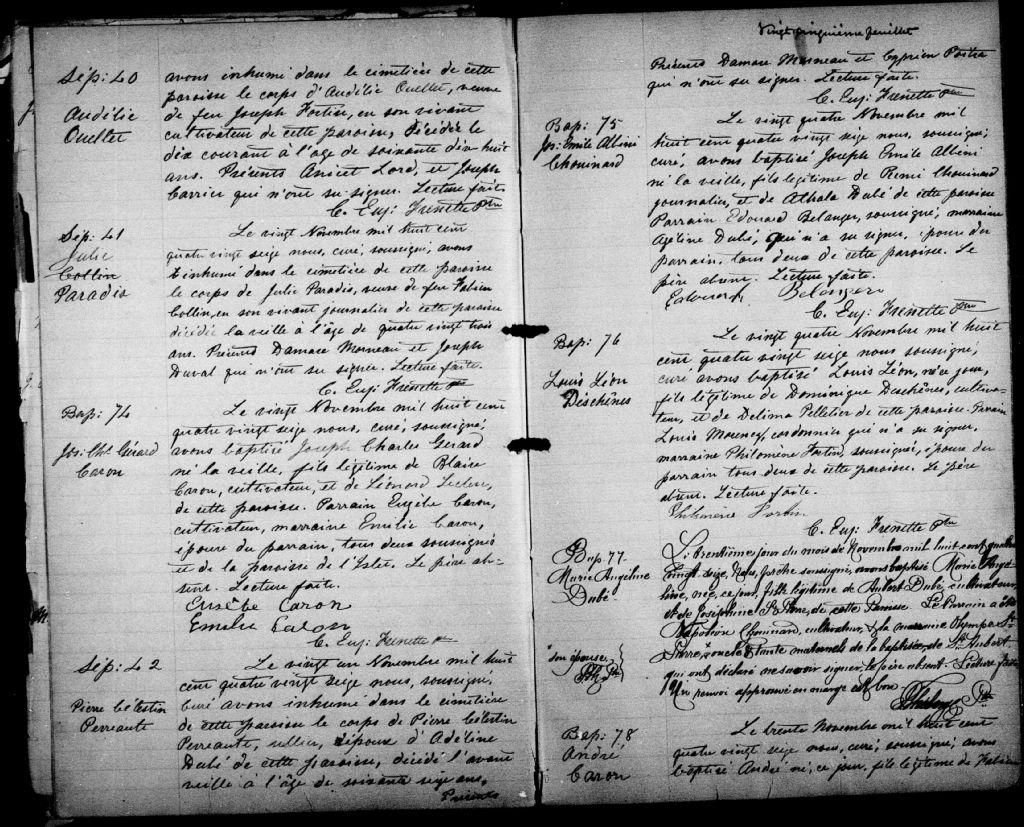 Sép: 40
Audélie
Ouellet
avons inhumé dans le cimetière de cette
paroisse le corps d'Audélie Ouellet, veuve
de feu Joseph Fortin, en son vivant
cultivateur de cette paroisse, décédée le
dix courant à l'âge de soixante dix huit
ans. Présents Anicet Lord, et Joseph
qui n'ont su signer. Lecture faite.
C. Eug: Frenette Ptre
Sép: 41
Julie
Collin
Paradis
Le vingt Novembre mil huit cent
quatre vingt seize nous, curé, soussigné, avons
inhumé dans le cimetière de cette paroisse
le corps de Julie Paradis, veuve de feu Fabien
Collin, en son vivant journalier de cette paroisse
décédée la veille à l'âge de quatre vingt trois
ans. Présents Damase Morneau et Joseph
Duval qui n'ont su signer. Lecture faite.
C. Eug: Frenette Ptre
Bap: 74
Jos: Chs Gérard
Caron
Le vingt Novembre mil huit cent
quatre vingt seize nous, curé, soussigné,
avons baptisé Joseph Charles Gérard
né la veille, fils légitime de Blaise
Caron, cultivateur, et de Léonard Leclerc,
de cette paroisse. Parrain Eusèbe Caron,
cultivateur, marraine Emilie Caron,
épouse du parrain, tous deux soussignés
et de la paroisse de l'Islet. Le père ab-
sent. Lecture faite.
Eusèbe Caron
Emelie Caron
C. Eug: Frenette Ptre
Sép: 42
Pierre Célestin
Perreault
Le vingt un Novembre mil huit
cent quatre vingt seize nous, soussigné,
curé avons inhumé dans le cimetière
de cette paroisse le corps de Pierre Célestin
Perreault, sellier, époux d'Adéline
Dubé de cette paroisse, décédé l'avant
veille à l'âge de soixante seize ans.
Présents
Vingt cinquième feuillet
Présents Damase Morneau et Cyprien
qui n'ont su signer. Lecture faite.
C. Eug: Frenette Ptre
Bap: 75
Jos: Emile Albini
Chouinard
Le vingt quatre Novembre mil
huit cent quatre vingt seize nous, soussigné,
curé, avons baptisé Joseph Emile Albini
né la veille, fils légitime de Rémi Chouinard
journalier, et de Athala Dubé de cette paroisse
Parrain Edouard Belanger, soussigné, marraine
Azéline Dubé, qui n'a su signer, épouse du
parrain, tous deux de cette paroisse. Le
père absent. Lecture faite.
Edouard Belanger
C. Eug: Frenette Ptre
Bap: 76
Louis Léon
Déschênes
Le vingt quatre Novembre mil huit
cent quatre vingt seize nous soussigné,
curé avons baptisé Louis Léon, né ce jour,
fils légitime de Dominique Deschênes, cultiva-
teur, et de Delima Pelletier de cette paroisse. Parrain
Louis cordonnier qui n'a su signer,
marraine Philomène Fortin, soussigné, épouse du
parrain tous deux de cette paroisse. Le père
absent. Lecture faite.
Philomène Fortin
C. Eug: Frenette Ptre
Bap. 77.
Marie Angéline
Dubé.
Le trentième jour du mois de Novembre mil huit cent quatre
vingt seize, Nous, Prêtre soussigné, avons baptisé Marie Angé-
line, née, ce jour, fille légitime de Aubert Dubé, cultivateur,
et de Joséphine St Pierre, de cette Paroisse. Le Parrain a été
Napoléon Chouinard, cultivateur, & la marraine Olympe St.
Pierre, oncle & tante maternels de la baptisée, de St. Aubert.
qui ont déclaré ne savoir signer. Le père absent. Lecture faite
Un renvoi approuvé en marge est bon
son épouse,
Bap: 78
André
Caron
Le trente Novembre mil huit cent
quatre vingt seize nous, curé, soussigné, avons
baptisé André né, ce jour, fils légitime de Fabien